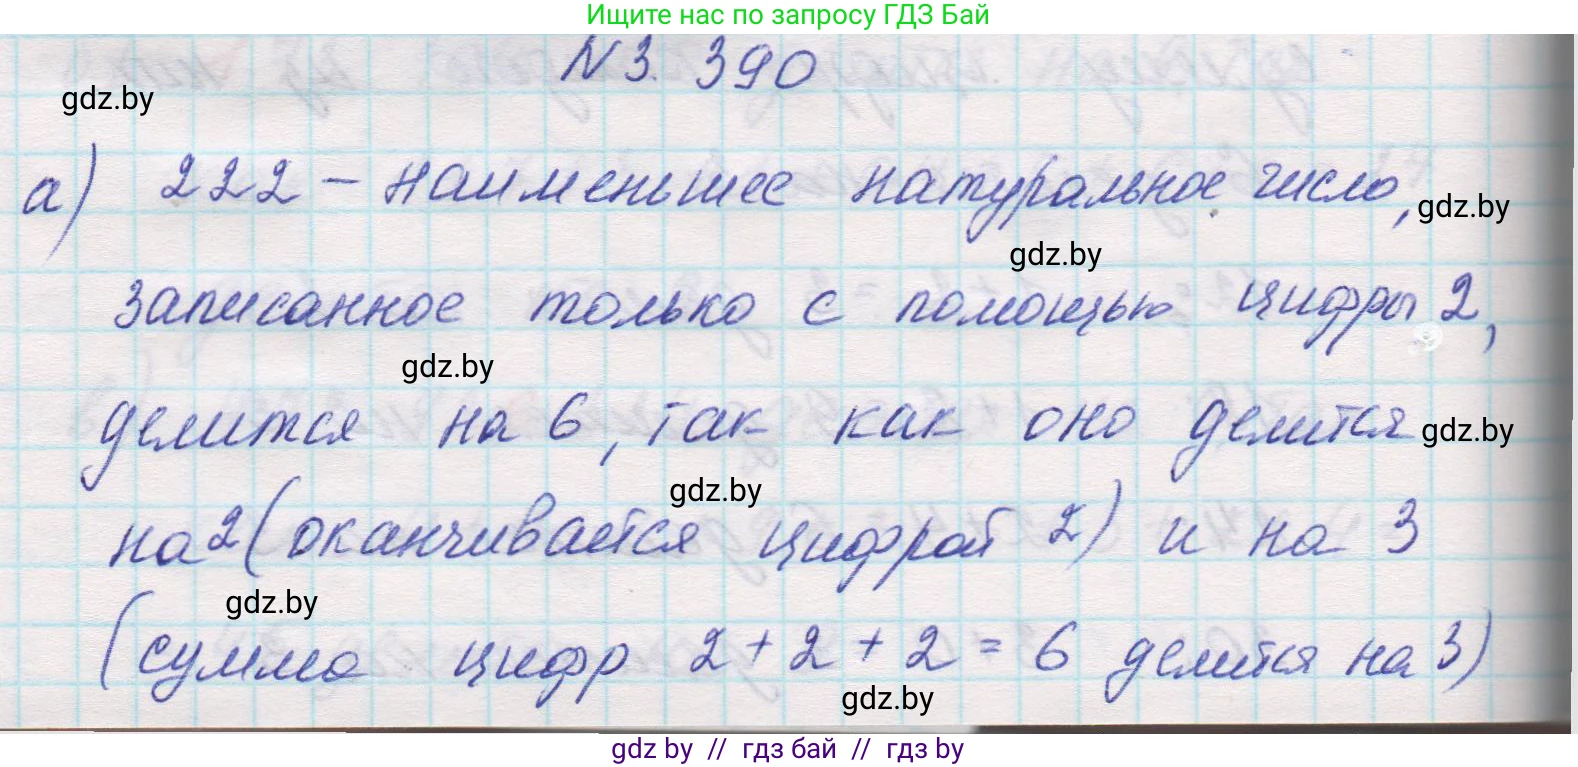 Ищите нас по запросу ГДЗ Бай
N 3. 390
gdz.by
а) 222 – наименьшее натуральное число,
gdz.by
gdz.by
записанное только с помощью цифры 2,
gdz.by
делится на 6, так как оно делится
gdz.by
gdz.by
на 2 (оканчивается цифрой 2) и на 3
gdz.by
(сумма цифр 2 + 2 + 2 = 6 делится на 3)
gdz.by
gdz by // гдз бай // гдз by